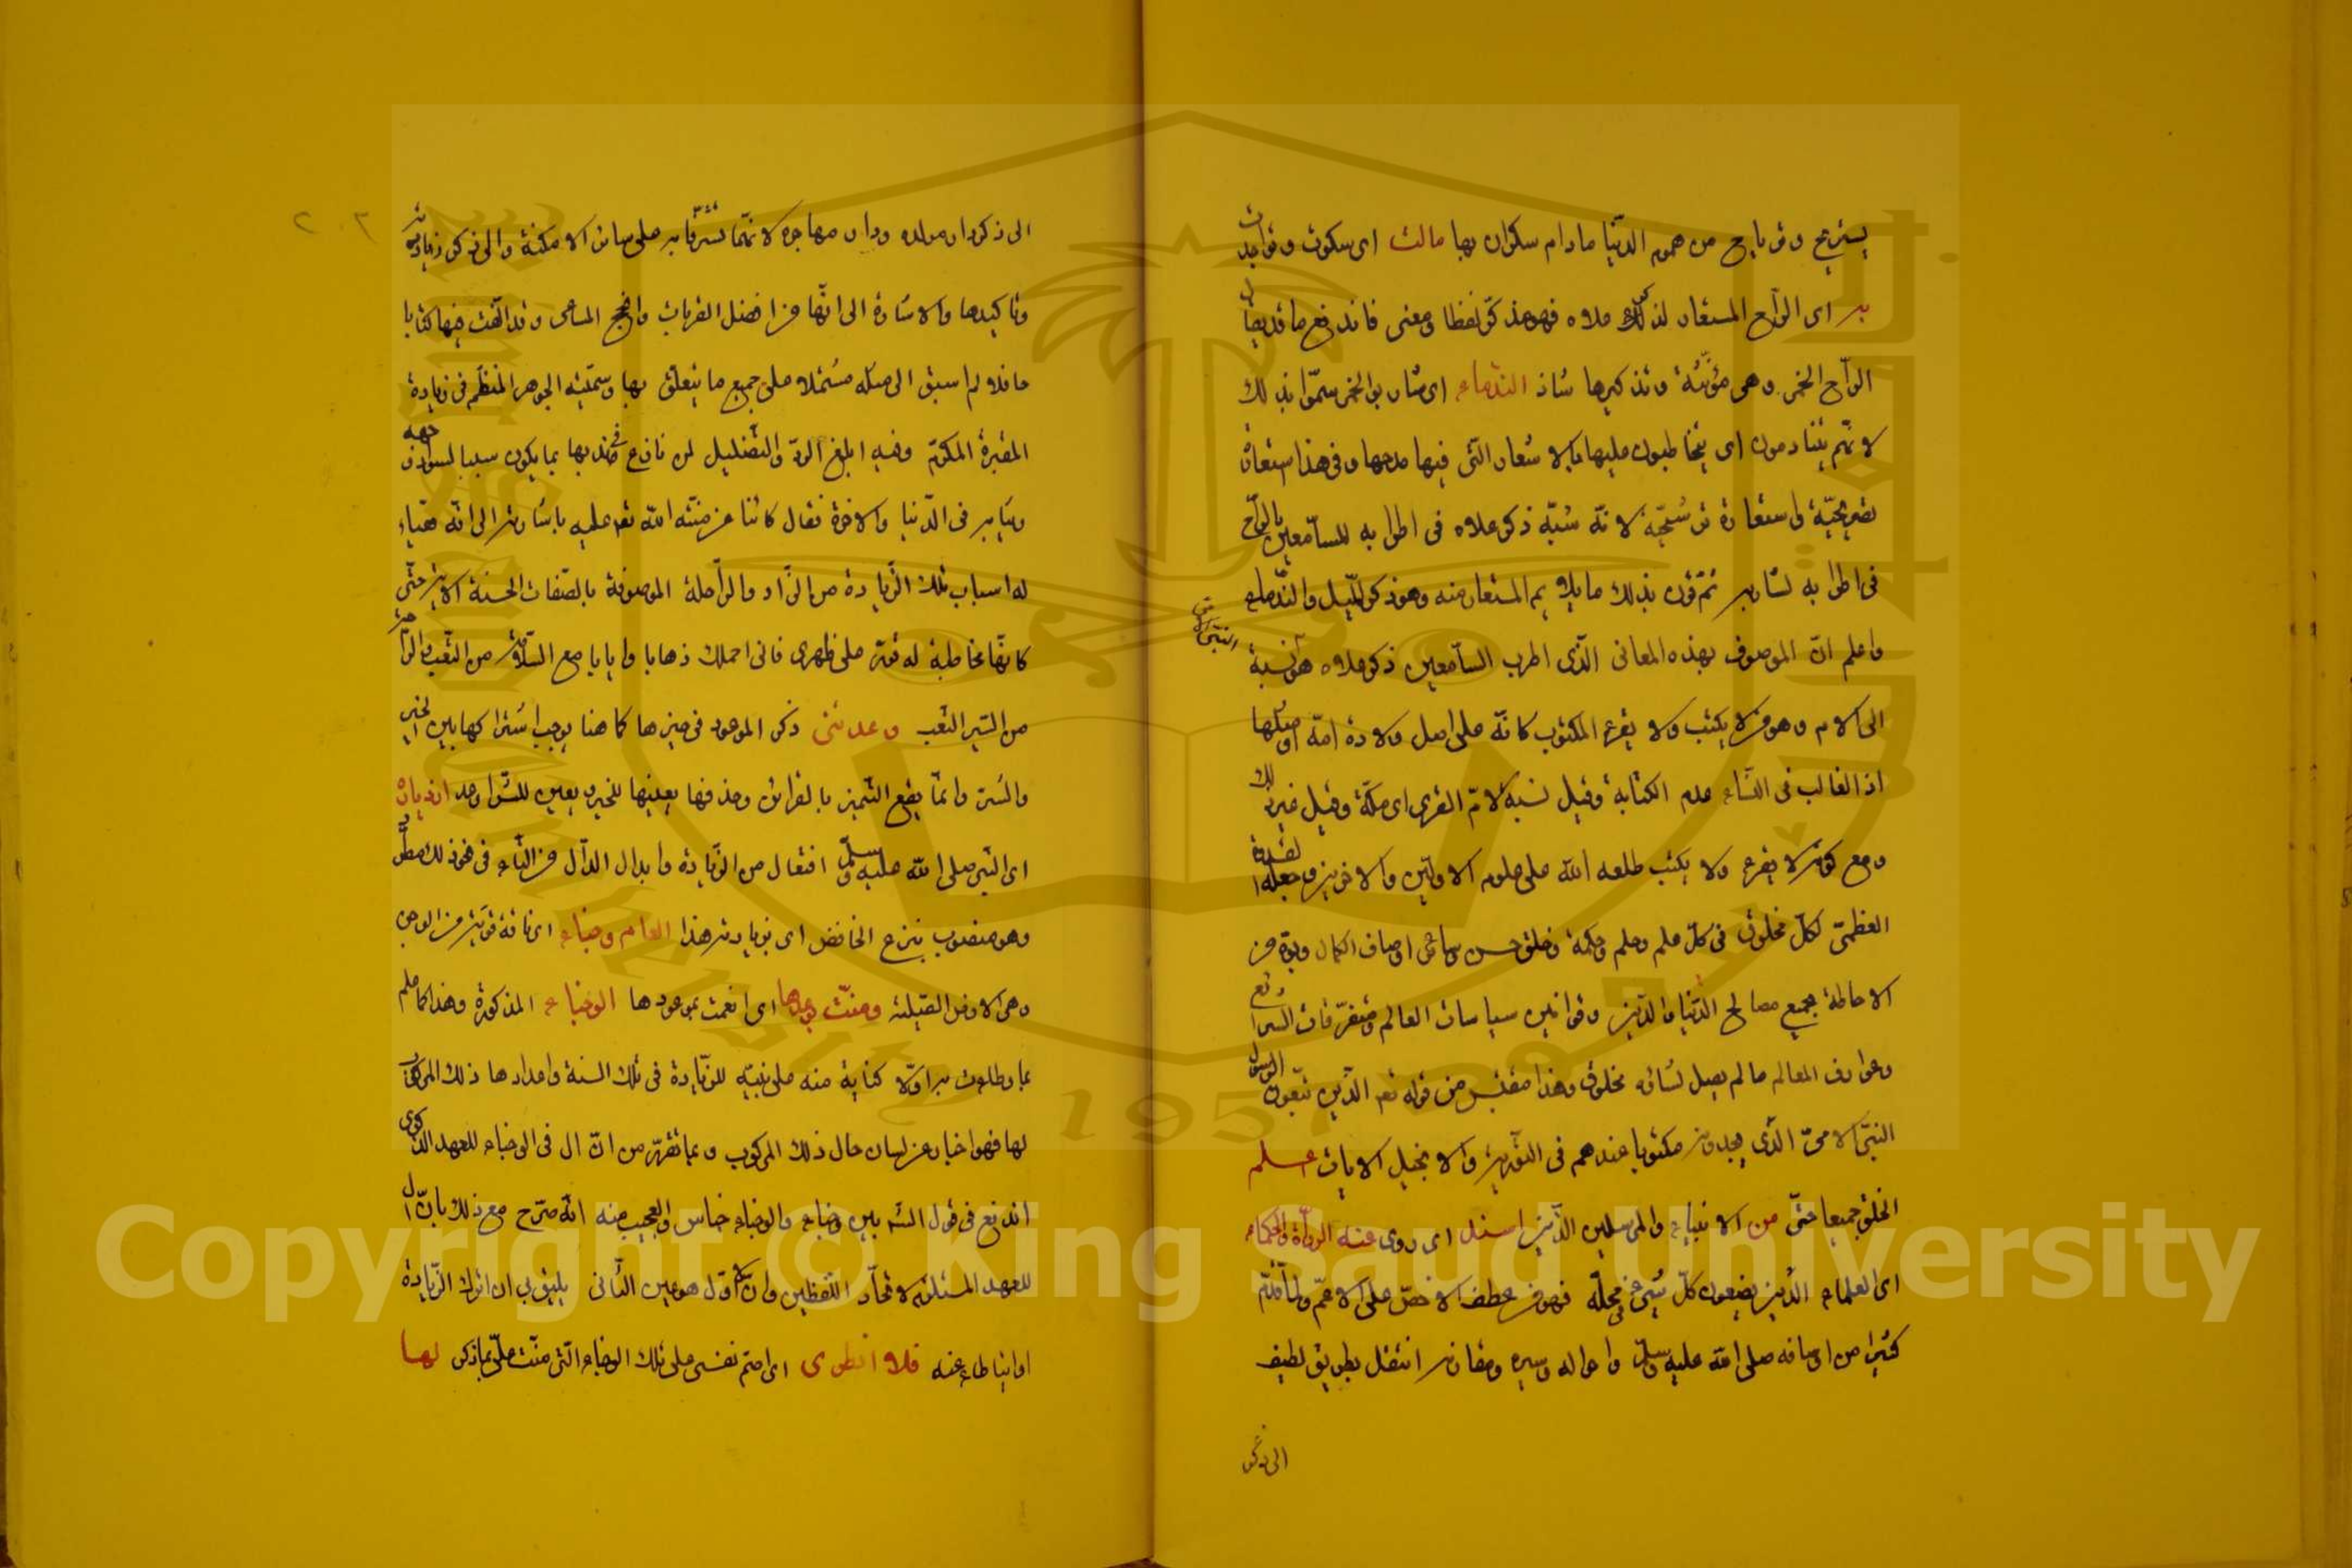 يستريح وقربا يح من هموم الدنيا مادام سكران بها مالت اى سكرت وتواجدت
به اى الراح المستعار لذلك علاه فهو مذكر لفظا ومعنى فاندفع ما قد يقال
الراح الخمر وهى مؤنثة وتذكيرها شاذ الندماء اى شاربوا الخمر سموا بذلك
لانهم يتنادمون اى يتخاطبون عليها بالاشعار التى فيها مدحها وفى هذا استعارة
تصريحية واستعارة ترشيحية لانه شبه ذكر علاه فى اطرابه للسامعين بالراح
فى اطرابه لشاربه ثم قرن بذلك ما يلايم المستعار منه وهو ذكر الميل والندماء
واعلم ان الموصوف بهذه المعانى الذى اطرب السامعين ذكر علاه هو النبى الامى نسبة
الى الام وهو من لا يكتب ولا يقرء المكتوب كانه على اصل ولادة امه او مثلها
اذ الغالب فى النساء عدم الكتابة وقيل نسبة لام القرى اى مكة وقيل غير ذلك
ومع كونه لا يقرء ولا يكتب طلعه الله على علوم الاولين والاخرين وجعله القدوة
العظمى لكل مخلوق فى كل علم وحلم وحكمة وخلق حسن وساعى اوصاف الكمال
الاحاطة بجميع مصالح الدنيا والدين وقوانين سياسات العالم ومتفرقات الشرائع
وعوارف المعالم ما لم يصل لشانه مخلوق وهذا مقتبس من قوله تعـ الذين يتبعون الرسول
النبى الامى الذى يجدونه مكتوبا عندهم فى التورية والانجيل الايات اعلم
الخلق جميعا حتى من الانبياء والمرسلين الذين اسند اى روى عنه الرواة والحكماء
اى العلماء الذين يضعون كل شىء فى محله فهو من عطف الاخص على الاعم ولما قدم
كثيرا من اوصافه صلى الله عليه وسلم واحواله وسيره انتقل بطريق لطيف
الى ذكر
الى ذكر دار مولده ودار مهاجره لانهما تشرفا به على سائر الامكنة والى ذكر زيارته
وتاكيدها والاشارة الى انها من افضل القربات وانجح المساعى وقد الفت فيها كتابا
حافلا لم اسبق الى مثله مشتملا على جميع ما يتعلق بها وسميته الجوهر المنظم فى زيارة
القبر المكرم وفيه ابلغ الرد والتضليل لمن نازع فى ندبها بما يكون سببا لسواد وجهه
فى الدنيا والاخرة فقال كائنا عن منته الله تعـ عليه باشارته الى انه هياء
له اسباب تلك الزيارة من الزاد والراحلة الموصوفة بالصفات الحسنة الاتية حتى
كانها مخاطبة له على ظهرى فانى احملك ذهابا وايابا مع السلامة من التعب والراحة
من السير التعب وعدتنى ذكر الموعود فى حيزها كما هنا يوجب اشتراكها بين الخير
والشر وانما يقع التميز بالقرائن وحذفها يعينها للخير ويعين للشر اوعد ازدياره
اى النبى صلى الله عليه وسلم افتعال من الزيارة وابدال الدال من التاء فى نحو ذلك مطرد
وهو منصوب بنزع الخافض اى بزيارته هذا العام وجناء اى ناقة قوية من الوجين
وهى الارض الصلبة ومنت بوعدها اى انعمت بموعودها الوجناء المذكورة وهذا كما علم
مما كناية منه على نيته للزيارة فى تلك السنة واعدادها ذلك المركوب
لها فهو اخبار عن لسان حال ذلك المركوب وبما تقرر من ان ال فى الوجناء للعهد الذكرى
اندفع فى قول الشـ بين وجناء والوجناء جناس والعجيب منه انه صرح مع ذلك بان ال
للعهد المستلزم لاتحاد اللفظين وان الاول هو عين الثانى يليق بى ان اترك الزيارة
او اتباطاء عنه فلا انطوى اى اضم نفسى على تلك الوجناء التى منت على بما ذكر لها
Copyright © King Saud University
1957